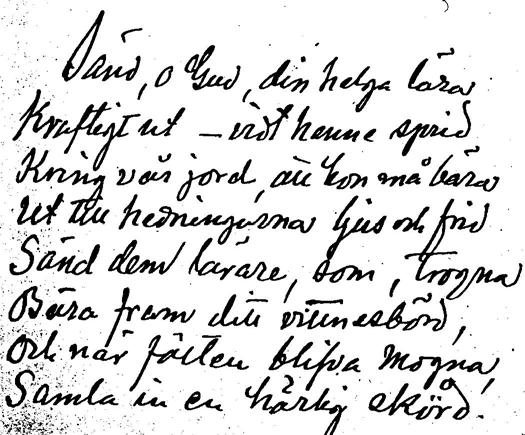 Sänd, o Gud, din helga lära
Kraftigt ut – vidt henne sprid
Kring vår jord, att hon må bära
Ut till hedningarna ljus och frid
Sänd dem lärare, som, trogna
Bära fram ditt vittnesbörd,
Och när fälten blifva mogna,
Samla in en härlig skörd.